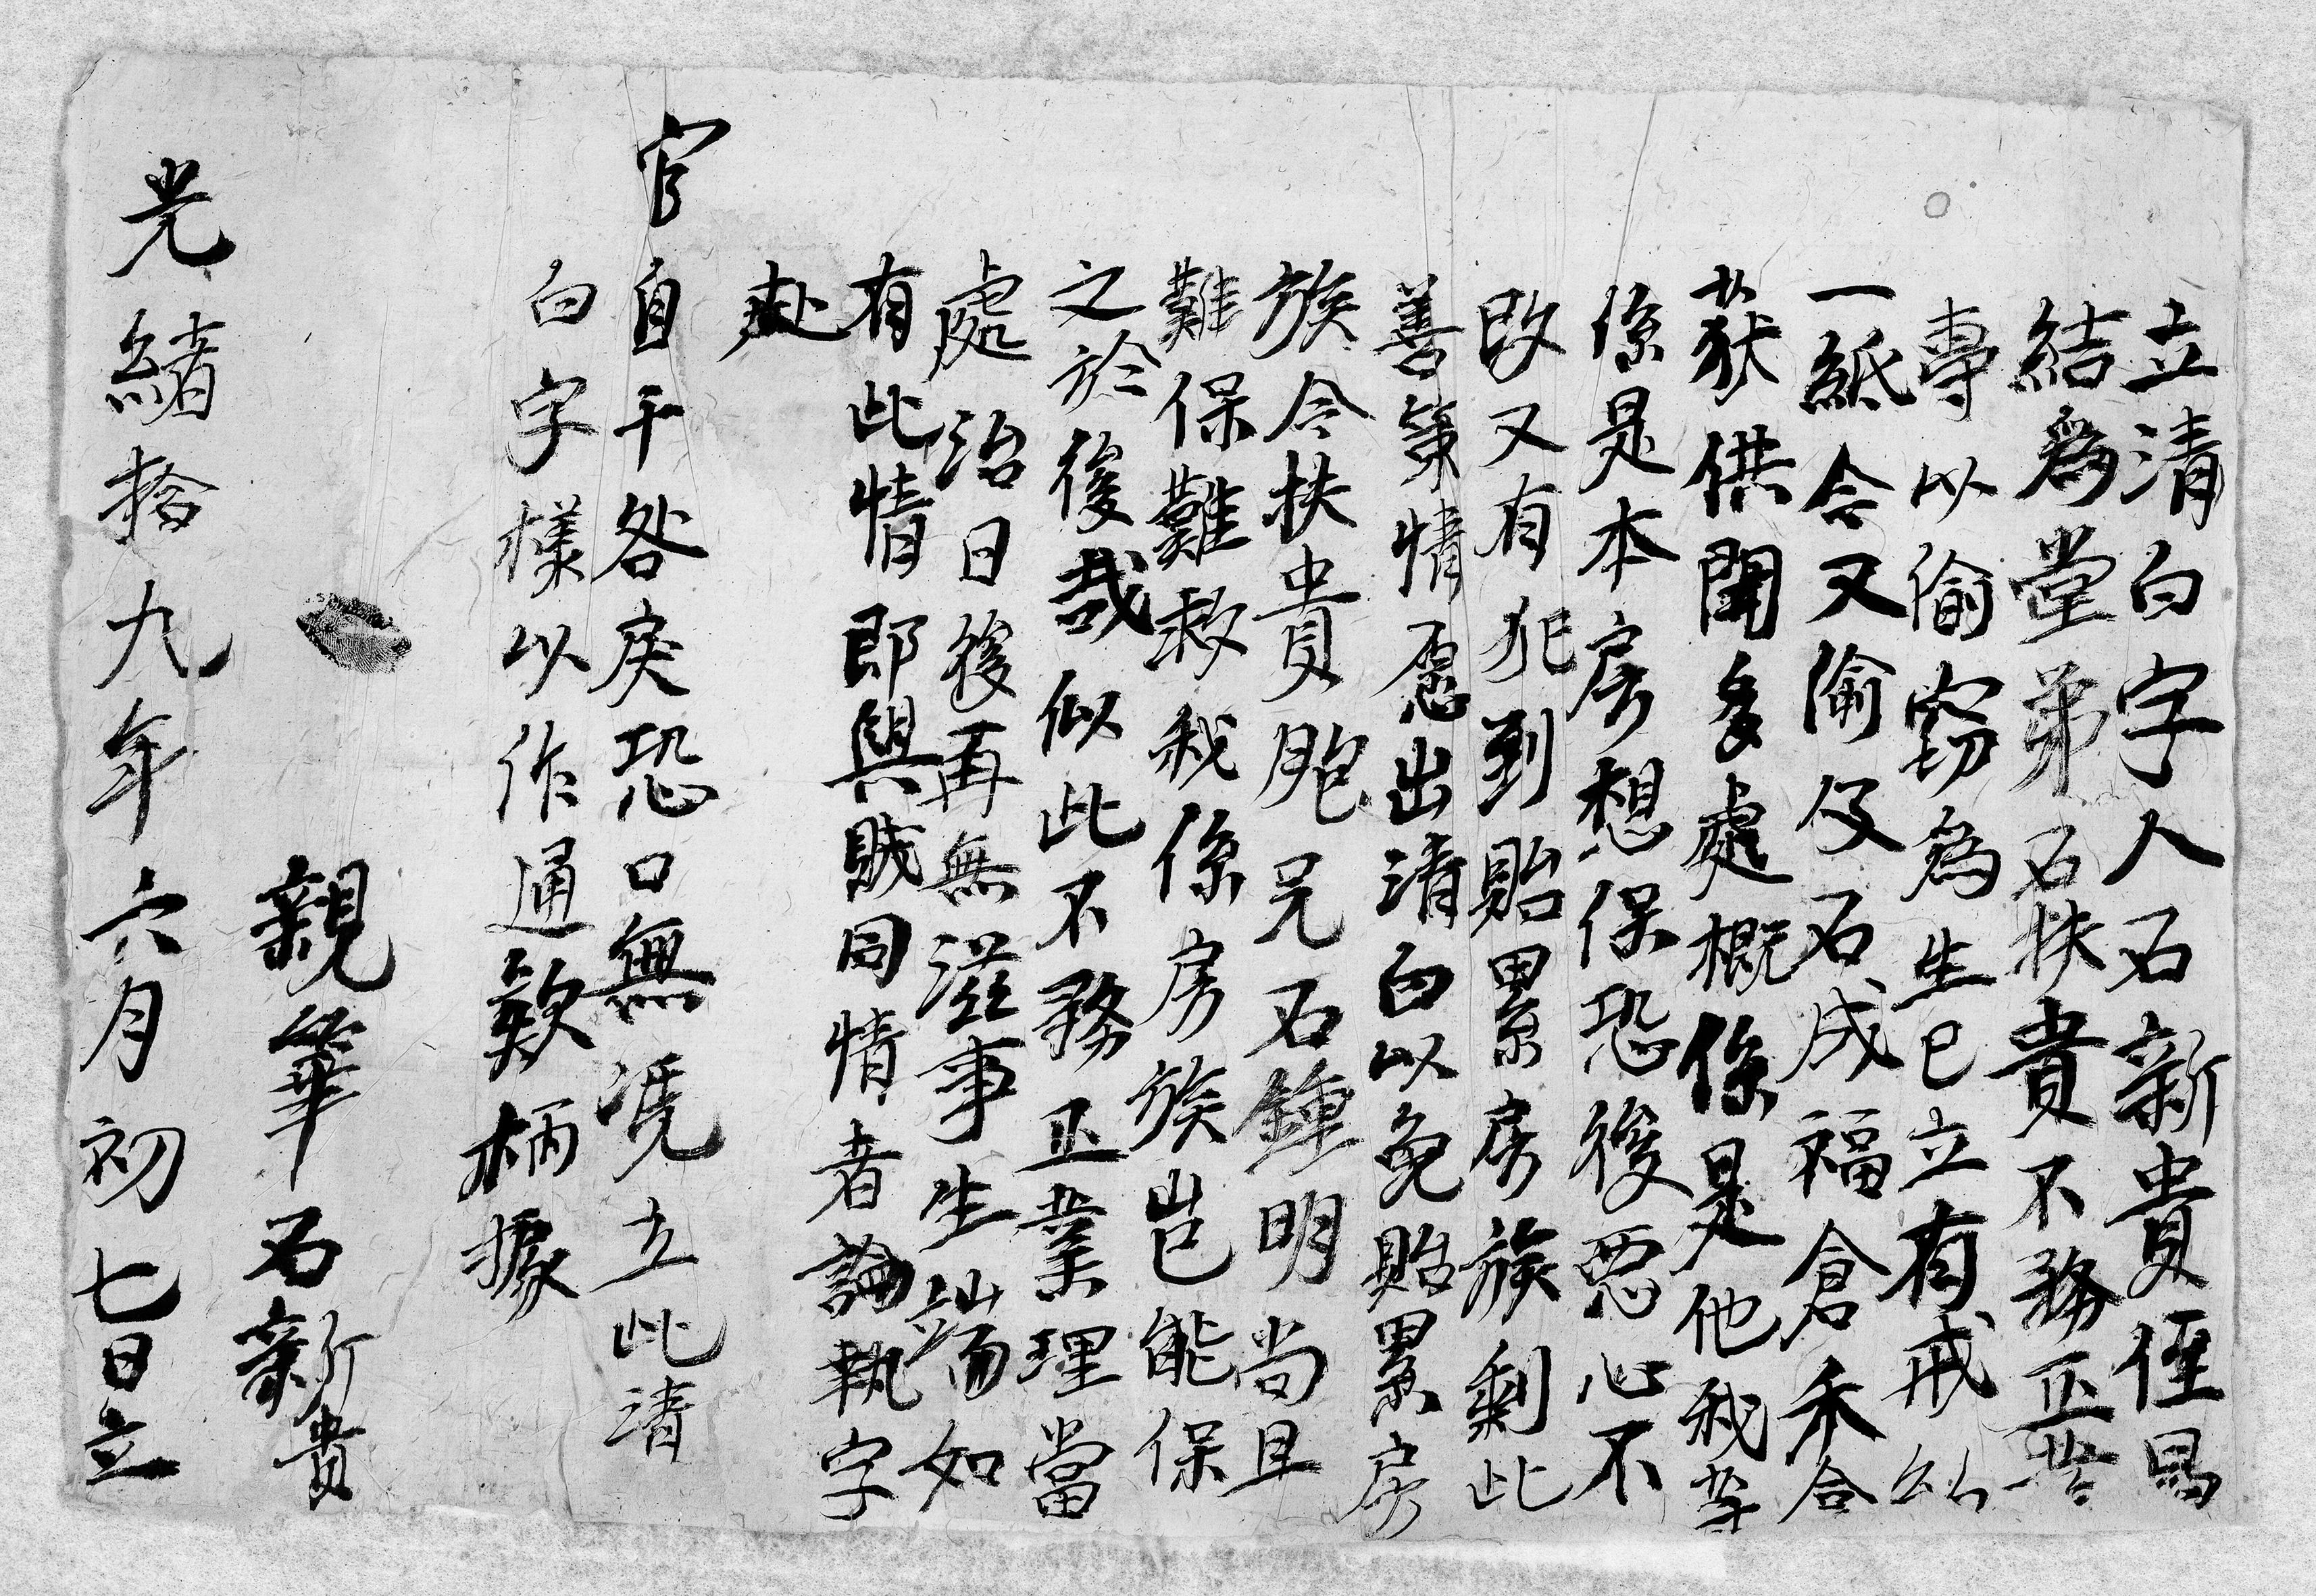 立清白字人石新貴侄昌
結為堂弟石扶貴不務正業
專以偷窃為生已立有戒
一紙今又偷伋石成福倉禾合
獄供開多處概係是他我等
係是本房想保恐後悪心不
改又有犯到貽累房族剩此
善策情愿出清白以免貽累房
族令扶貴胞兄石鍾明尚且
難保難救我係房族岂能保
之於後哉似此不務正業理當
處治日後再無滋事生端如
有此情即與賊同情者論執字
赴
官自干咎戾恐口無凴立此清
白字樣以作通欵柄據
親筆石新貴
光緒拾九年六月初七日立